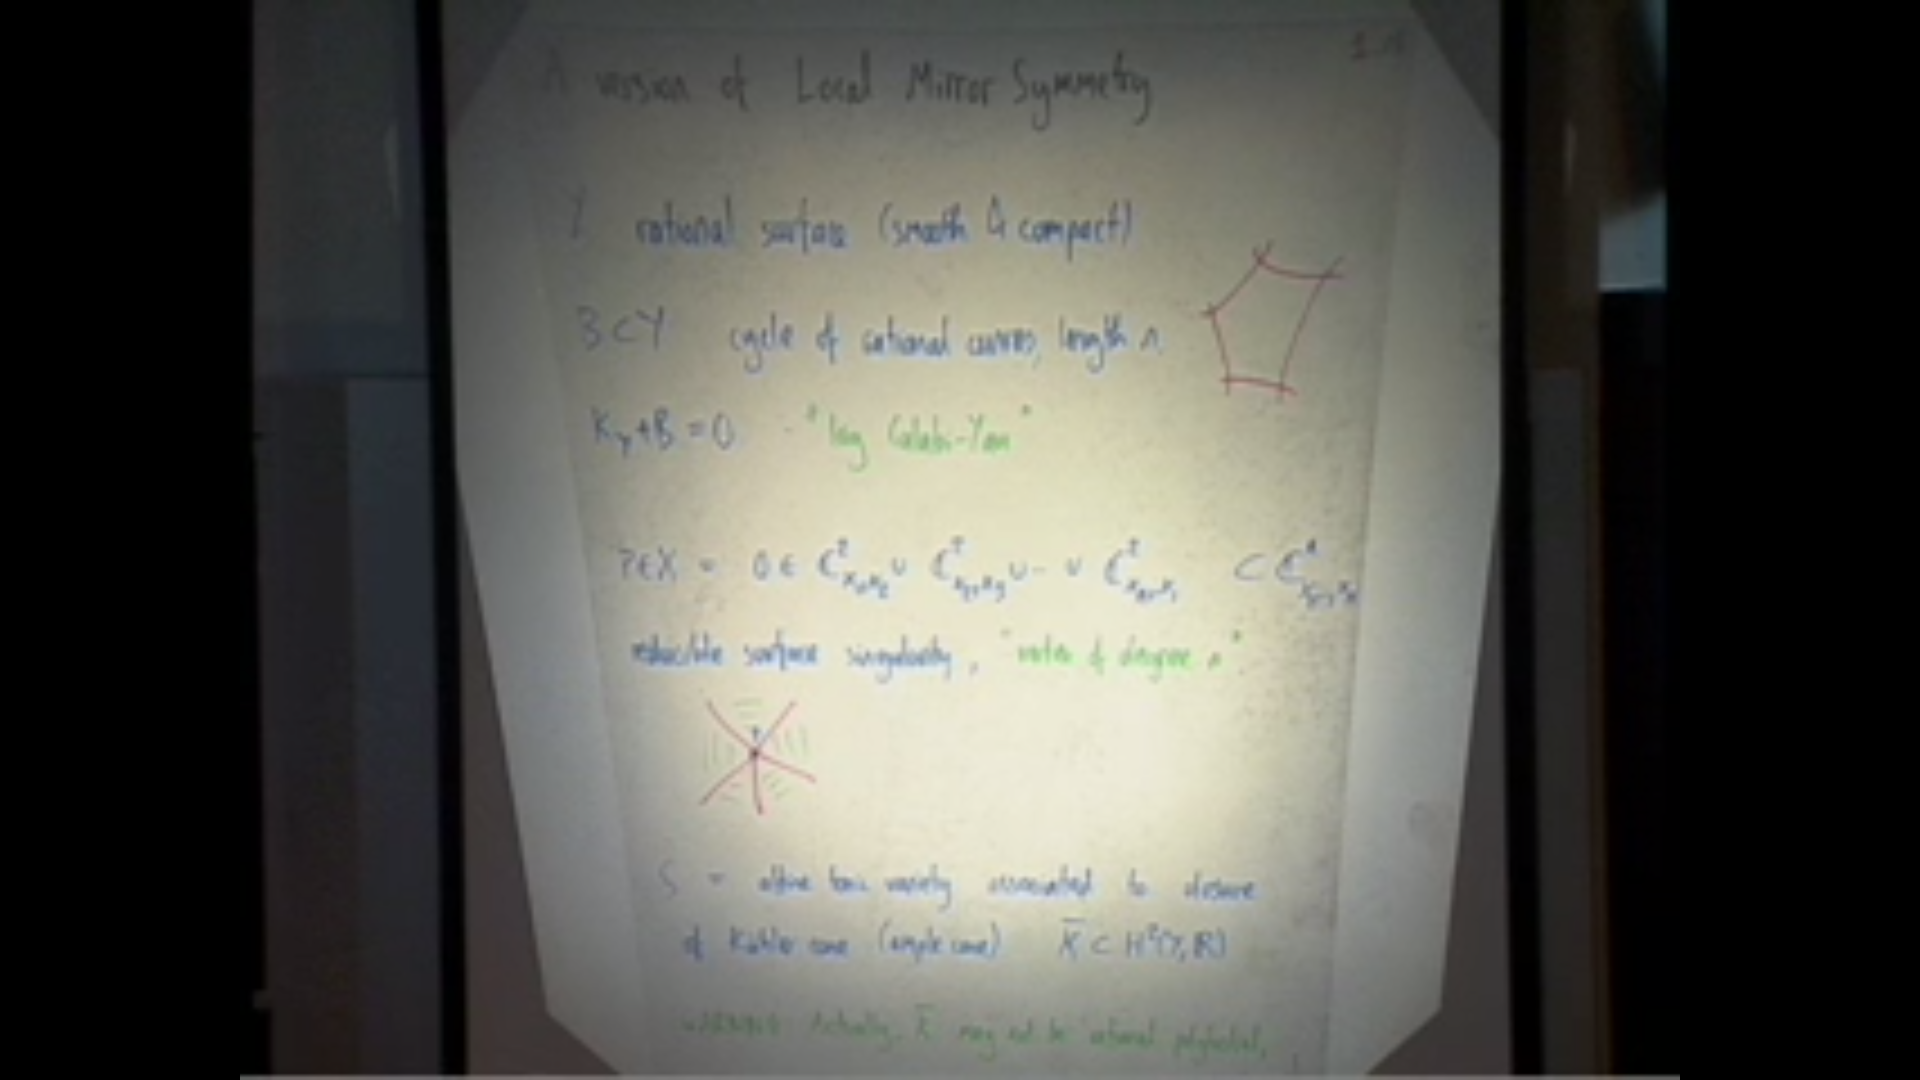 A version of Local Mirror Symmetry
Y rational surface (smooth & compact)
B ⊂ Y cycle of rational curves, length n.
K_Y + B = 0 - "log Calabi-Yau"
P ∈ X = 0 ∈ ℂ²_{x₁,x₂} ∪ ℂ²_{x₂,x₃} ∪ - ∪ ℂ²_{xₙ,x₁} ⊂ ℂⁿ_{x₁,..,xₙ}
reducible surface singularity, "vertex of degree n".
S = affine toric variety associated to closure
of Kähler cone (ample cone) K̄ ⊂ H²(Y, ℝ)
Actually, K̄ may not be rational polyhedral,